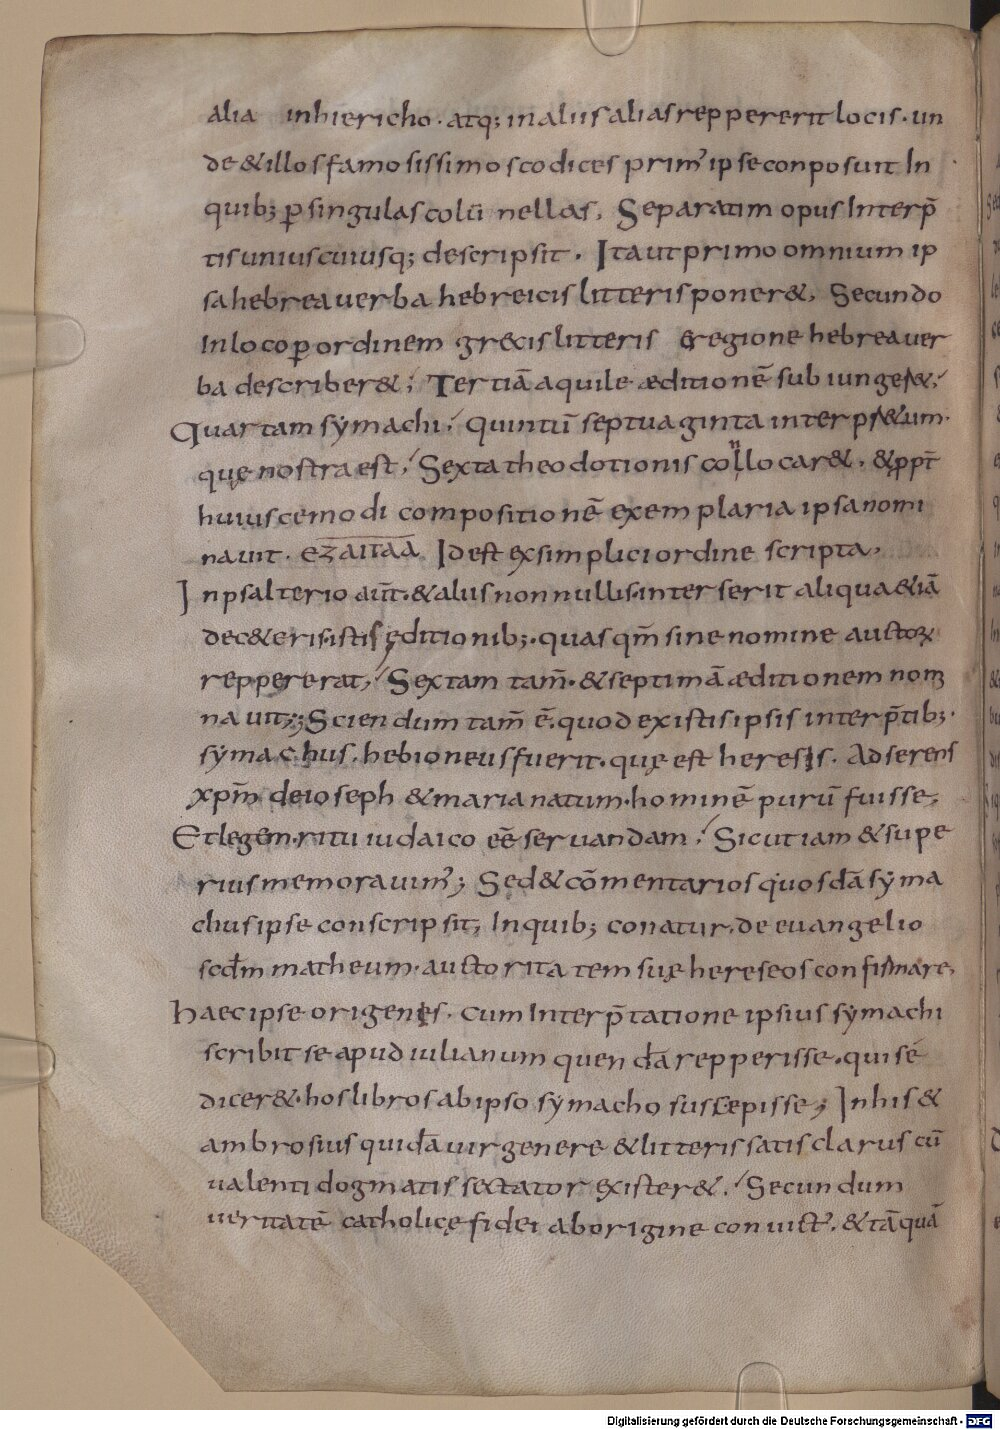 alia inhiericho. atq; in aliis alias reppererit locis. un
de & illos famosissimos codices primꝰ ipse conposuit In
quib; ꝑ singulas colūnellas. Separatim opus Interp̄
tis uniuscuiusq; descripsit. Ita ut primo omnium ip
sa hebrea uerba hebreicis litteris poner&. Secundo
In loco ꝑ ordinem grecis litteris e regione hebrea uer
ba describer&; Tertiā aquile æditionē subiunge&;
Quartam symachi; quintū septuaginta interp&um.
quę nostra est; Sexta theodotionis conlocar&. & ꝓpt̄
huiuscemodi compositionē exemplaria ipsa nomi
nauit. Id est exsimplici ordine scripta,
In psalterio aūt. & aliis nonnullis. inter serit aliqua & iā
de c&eris. istis ęditionib;. quas qm̄ sine nomine auctoꝝ
reppererat; Sextam tam̄. & septimā æditionem nom
nauit; Sciendum tam̄ ē. quod existis ipsis interp̄tib;.
symachus. hebioneus fuerit. quę est heresis. Adserens
xp̄m de ioseph & maria natum. hominē purū fuisse,
Et legem. ritu iudaico eē seruandam; Sicut iam & supe
rius memorauimꝰ; Sed & cōmentarios quosdā syma
chus ipse conscripsit; In quib; conatur. de euangelio
scd̄m matheum. auctoritatem suę hereseos confirmare,
Haec ipse origenis. cum Interp̄tatione ipsius symachi
scribit se apud iulianum quendā repperisse. qui se
dicer&. hos libros ab ipso symacho suscepisse; In his &
ambrosius quidā uir genere & litteris satis clarus cū
ualenti dogmatis sectator exister&; Secundum
ueritatē catholicę fidei ab origine conuictꝰ. & tāquā
Digitalisierung gefördert durch die Deutsche Forschungsgemeinschaft - DFG